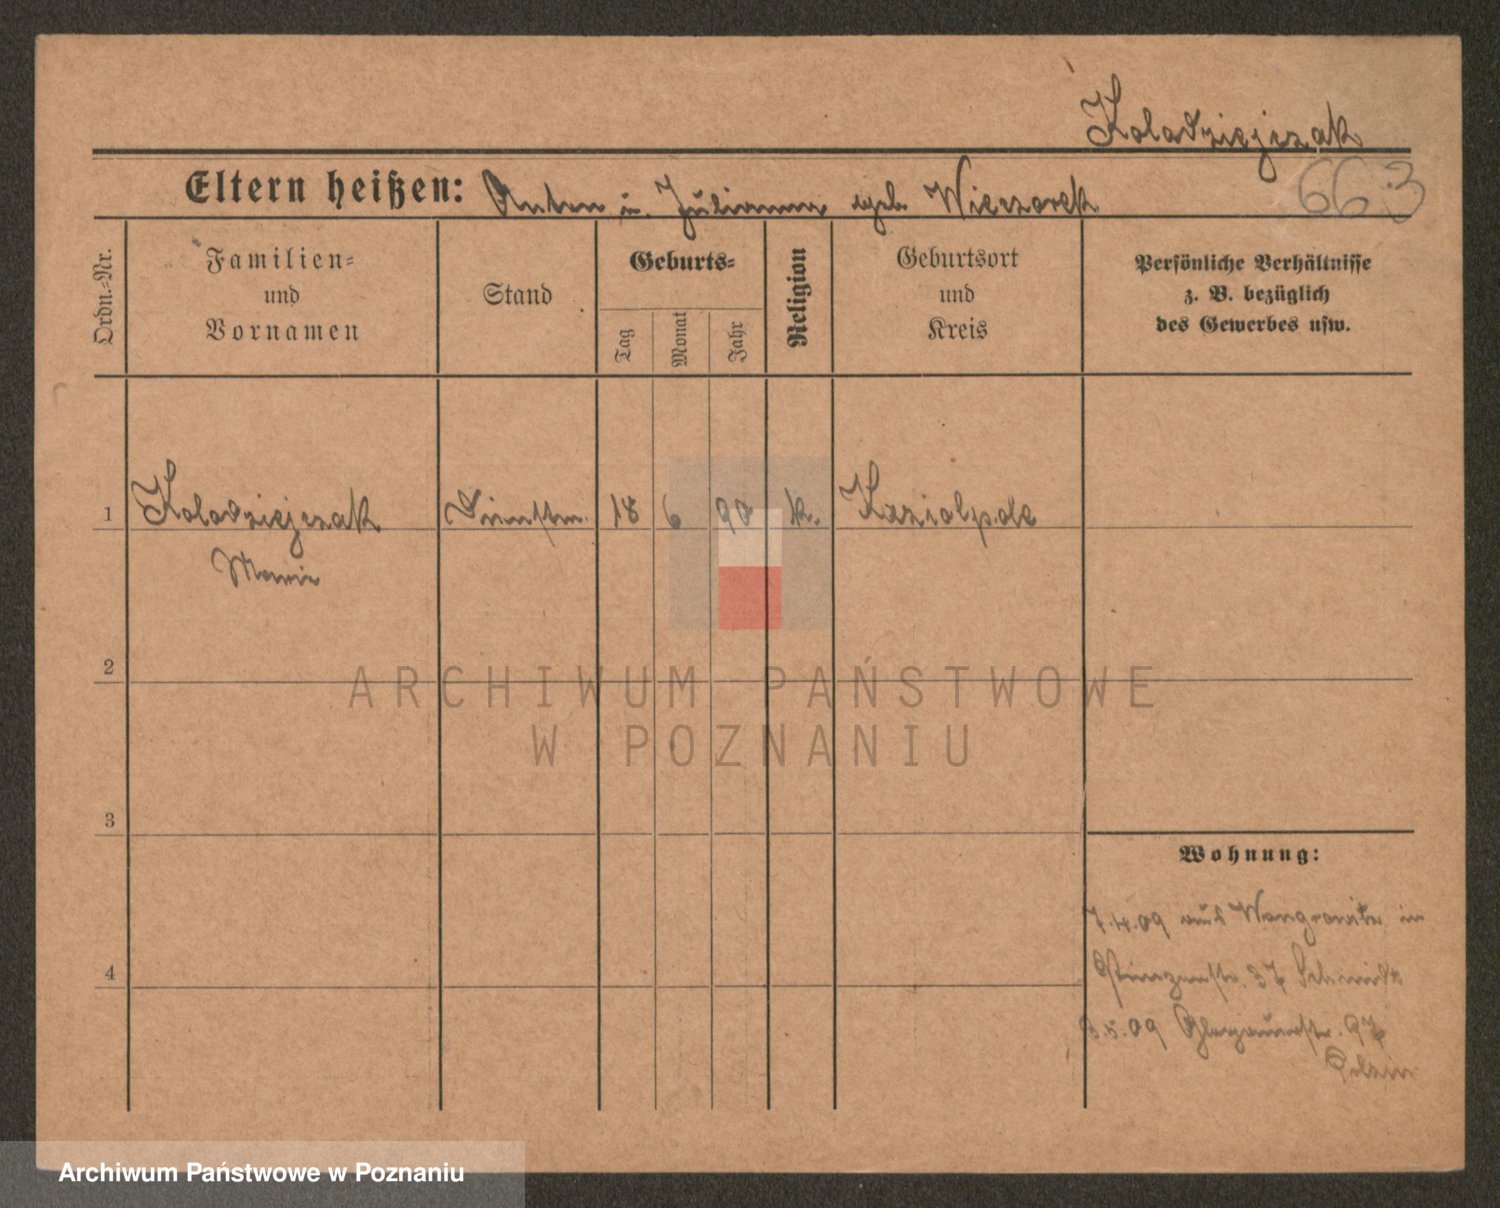 Kolodziejczak
Eltern heißen: Anton u. Julianna geb. Wieczorek
663
Ordn.-Nr.
Familien-
und
Vornamen
Stand
Geburts-
Tag
Monat
Jahr
Religion
Geburtsort
und
Kreis
Persönliche Verhältnisse
z. B. bezüglich
des Gewerbes usw.
1 Kolodziejczak 18 6 90 k. Koziolpole
Marie
2
3
4
ARCHIWUM PAŃSTWOWE
W POZNANIU
Wohnung:
7.4.09 aus Wongrowitz in
37 Schmidt
5.09 Glogauerstr. 97
Archiwum Państwowe w Poznaniu